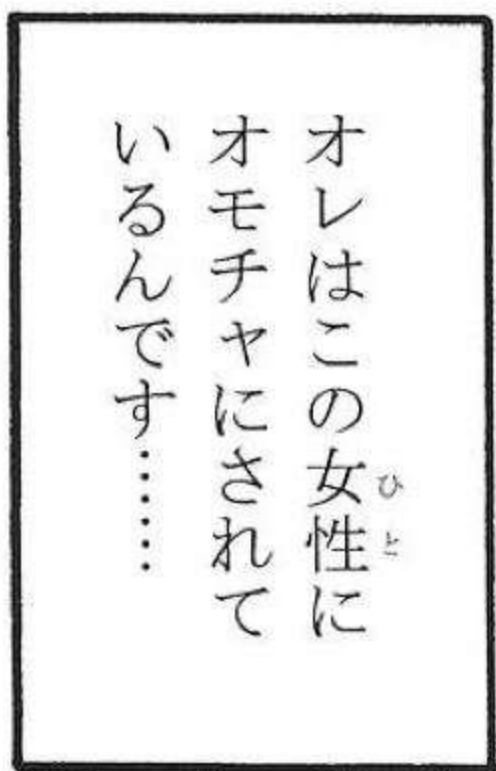 オレはこの女性に
オモチャにされて
いるんです……
ひと